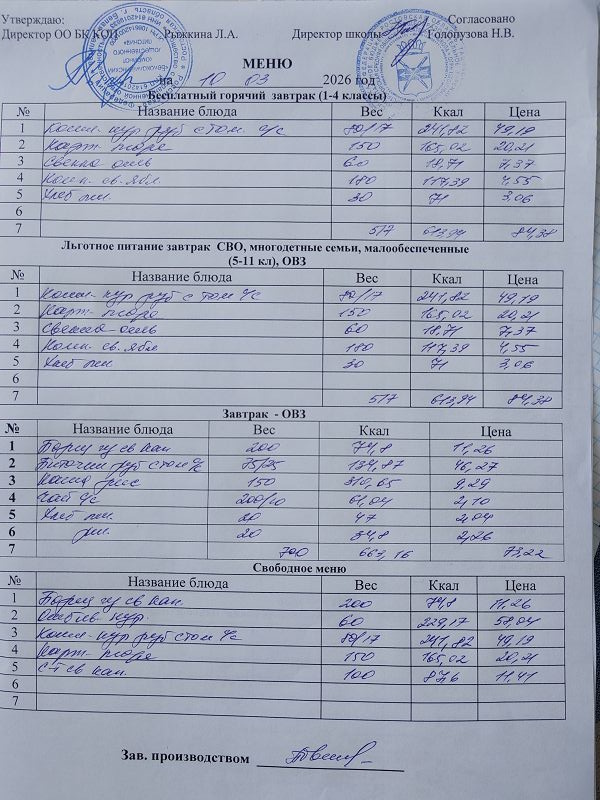 Утверждаю: Согласовано
Директор ОО БК КОП Рыжкина Л.А. Директор школы Голопузова Н.В.
МЕНЮ
на 10 03 2026 год
Бесплатный горячий завтрак (1-4 классы)
№ Название блюда Вес Ккал Цена
1 кур руб с том с/с 80/17 241,82 49,19
2 Карт. пюре 150 165,02 20,21
3 Свекла 60 18,71 7,37
4 Комп. св. ябл. 180 117,39 4,55
5 Хлеб пш. 30 71 3,06
6
7 517 613,94 84,38
Льготное питание завтрак СВО, многодетные семьи, малообеспеченные
(5-11 кл), ОВЗ
№ Название блюда Вес Ккал Цена
1 кур руб с том с/с 80/17 241,82 49,19
2 Карт. пюре 150 165,02 20,21
3 Свекла 60 18,71 7,37
4 Комп. св. ябл 180 117,39 4,55
5 Хлеб пш 30 71 3,06
6
7 517 613,94 84,38
Завтрак - ОВЗ
№ Название блюда Вес Ккал Цена
1 Борщ из св кап 200 74,8 11,26
2 Биточки руб с том с/с 75/25 134,87 46,27
3 Каша рис 150 310,65 9,29
4 Чай с/с 200/10 61,04 2,10
5 Хлеб пш. 20 47 2,04
6 рж. 20 34,8 2,26
7 700 663,16 73,22
Свободное меню
№ Название блюда Вес Ккал Цена
1 Борщ из св кап. 200 74,8 11,26
2 кур. 60 229,17 58,04
3 кур руб с том с/с 80/17 241,82 49,19
4 Карт. пюре 150 165,02 20,21
5 С-т св кап. 100 87,6 11,41
6
7
Зав. производством